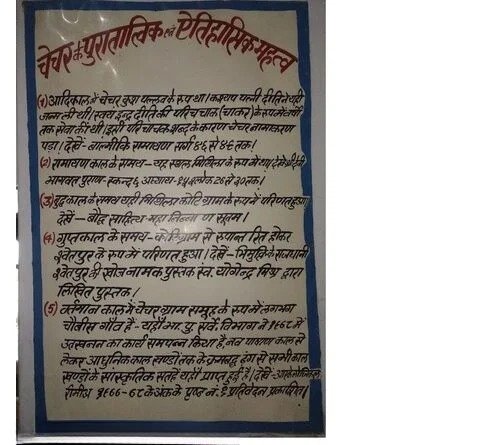 चेचर के पुरातात्विक एवं ऐतिहासिक महत्व
(1) आदिकाल में चेचर कुश पल्लव के रूप था। कश्यप पत्नी दीति ने यही
जन्म ली थी। स्वयं इन्द्र दीति की परिचाक (चाकर) के रूप में वर्षो
तक सेवा की थी। इसी परिचाक शब्द के कारण चेचर नामकरण
पड़ा। देखें- वाल्मीकि रामायण सर्ग ४६ से ४८ तक।
(2) रामायण काल के समय - यह स्थल मिथिला के रूप में था। देखें श्री
भागवत पुराण- स्कन्द ६ अध्याय- १५ श्लोक 26 से ३० तक।
(3) बुद्धकाल के समय यही मिथिला कोटिग्राम के रूप में परिणत हुआ।
देखें - बौद्ध साहित्य महा निव्वाण सुतम।
(4) गुप्तकाल के समय- कोटिग्राम से रूपान्तरित होकर
श्वेतपुर के रूप में परिणत हुआ। देखें- तिरभुक्ति के राजधानी
श्वेतपुर की खोज नामक पुस्तक स्व. योगेन्द्र मिश्र द्वारा
लिखित पुस्तक।
(5) वर्तमान काल में चेचर ग्राम समूह के रूप में लगभग
चौबीस गाँव हैं - यहाँ भा. पु. सर्वे. विभाग ने १९७८ में
उत्खनन का कार्य समपन्न किया है नव पाषाण काल से
लेकर आधुनिक काल खण्डो तक के क्रमबद्ध ढंग से सभी काल
खण्डो के सांस्कृतिक सतहें यहाँ प्राप्त हुई है। देखें
१९७७-७८ के अंक के पृष्ठ नं. ६ प्रतिवेदन प्रकाशित।